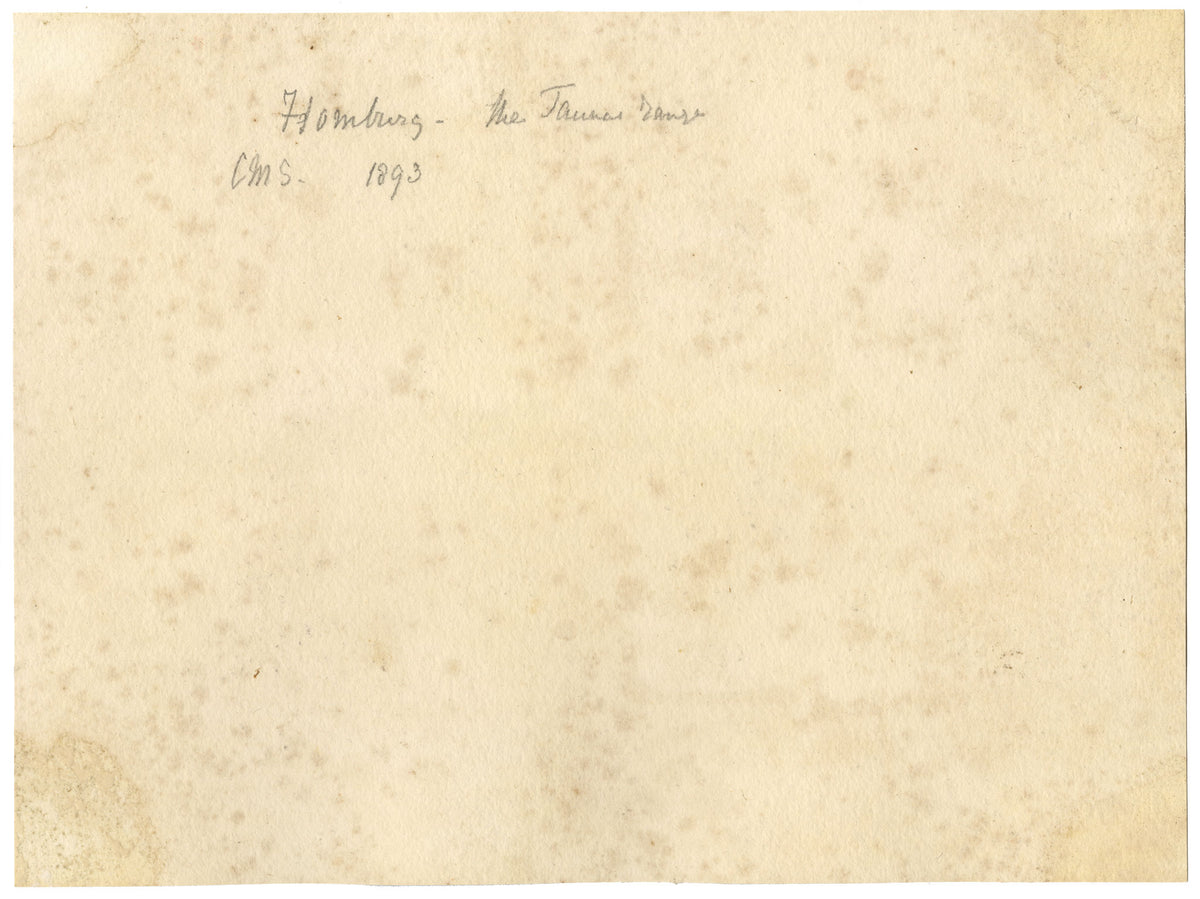 Homburg - the Taunus range
CMS. 1893